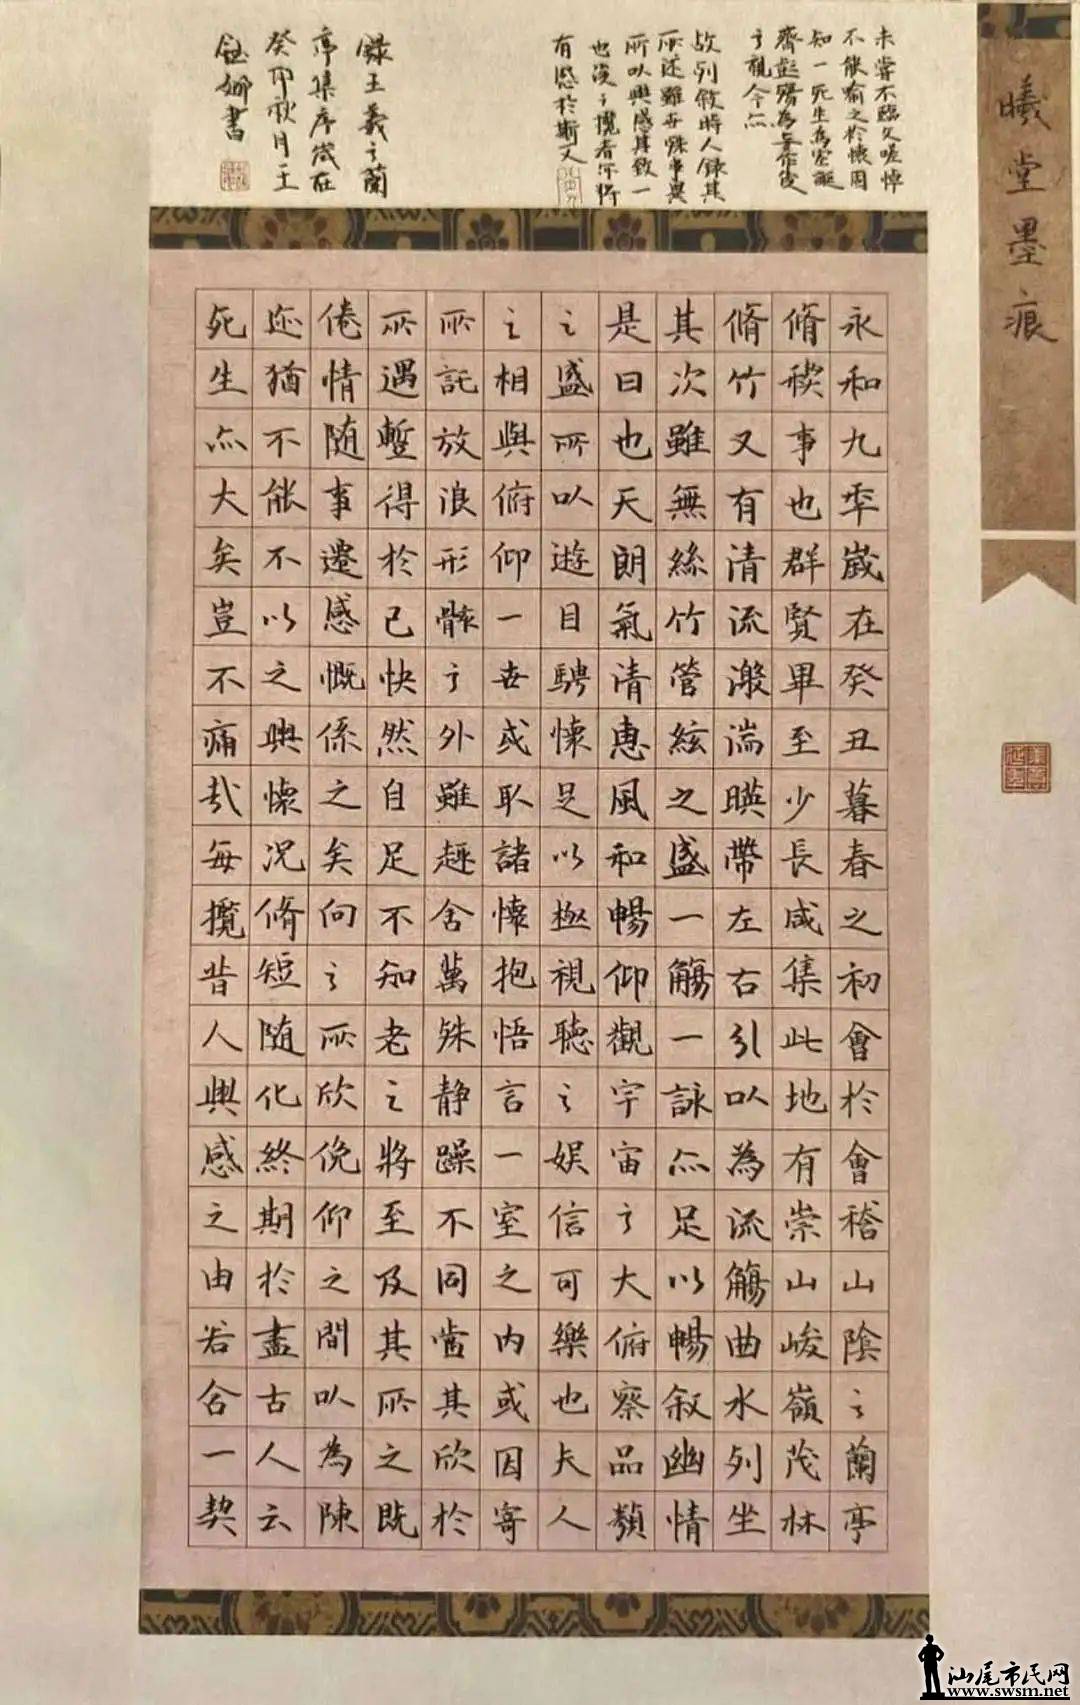 曦堂墨痕
未嘗不臨文嗟悼
不能喻之於懷固
知一死生為虛誕
齊彭殤為妄作後
之視今亦
故列敘時人錄其
所述雖世殊事異
所以興感其致一
也後之攬者亦將
有感於斯文
錄王羲之蘭
亭集序歲在
癸卯秋月王
鈺娜書
永和九年歲在癸丑暮春之初會於會稽山陰之蘭亭
脩稧事也群賢畢至少長咸集此地有崇山峻嶺茂林
脩竹又有清流激湍暎帶左右引以為流觴曲水列坐
其次雖無絲竹管絃之盛一觴一詠亦足以暢叙幽情
是日也天朗氣清惠風和暢仰觀宇宙之大俯察品類
之盛所以遊目騁懷足以極視聽之娛信可樂也夫人
之相與俯仰一世或取諸懷抱悟言一室之內或因寄
所託放浪形骸之外雖趣舍萬殊静躁不同當其欣於
所遇暫得於己快然自足不知老之將至及其所之既
倦情随事遷感慨係之矣向之所欣俛仰之間以為陳
迹猶不能不以之興懷況脩短随化終期於盡古人云
死生亦大矣豈不痛哉每攬昔人興感之由若合一契
汕尾市民网
www.swsm.net